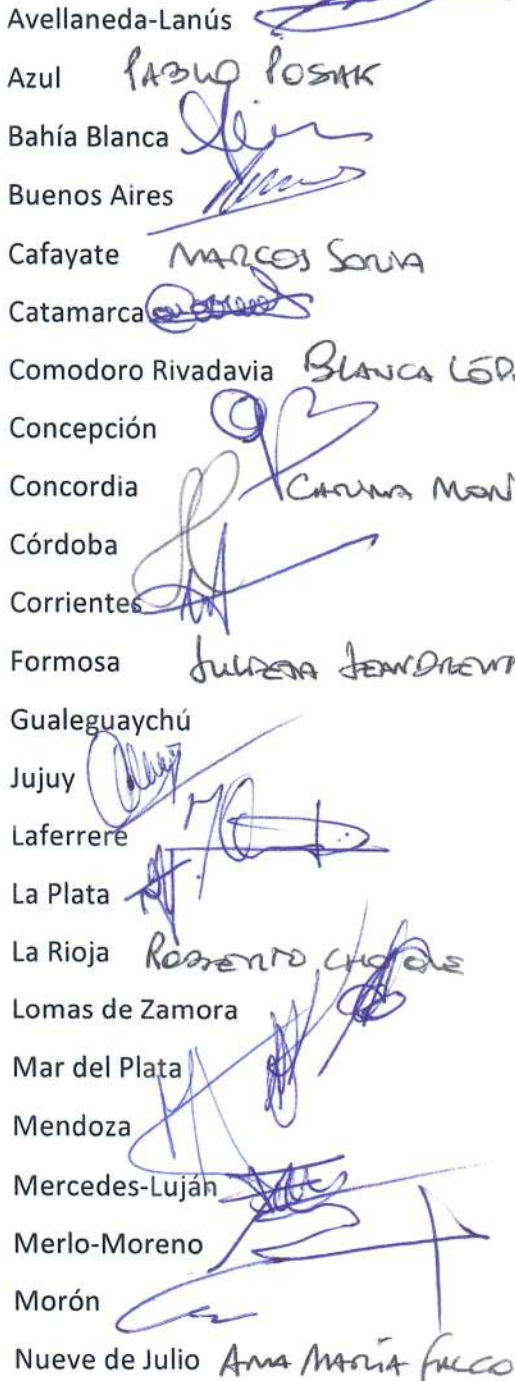 Avellaneda-Lanús
Azul PABLO POSYAK
Bahía Blanca
Buenos Aires
Cafayate MARCOS SORIA
Catamarca
Comodoro Rivadavia BLANCA
Concepción
Concordia CARINA
Córdoba
Corrientes
Formosa JULIETA
Gualeguaychú
Jujuy
Laferrere
La Plata
La Rioja ROBERTO
Lomas de Zamora
Mar del Plata
Mendoza
Mercedes-Luján
Merlo-Moreno
Morón
Nueve de Julio ANA MARÍA FALCO